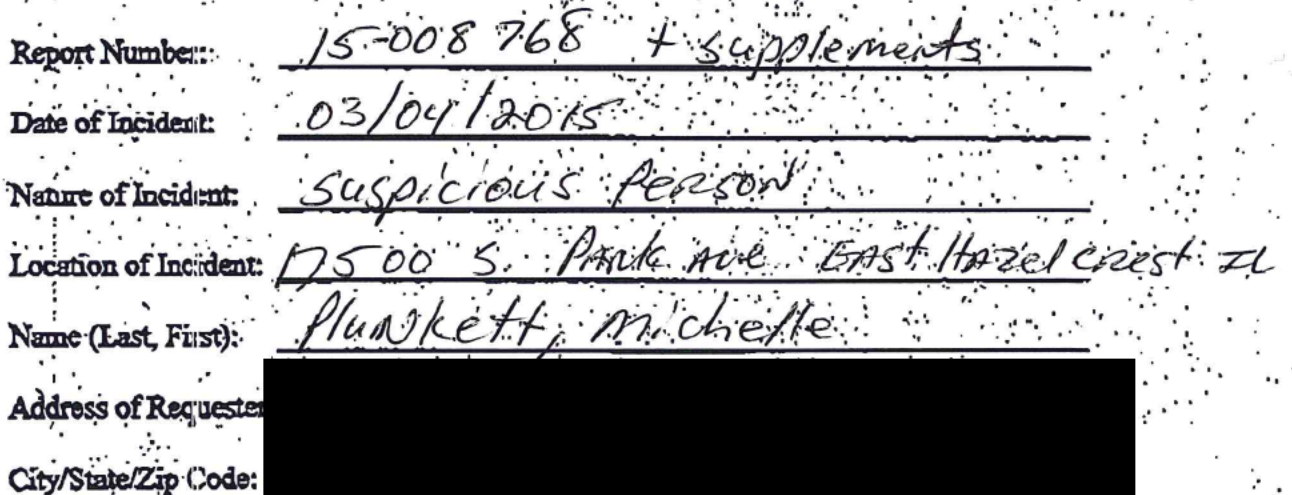 Report Number: 15-008768 + supplements
Date of Incident: 03/04/2015
Nature of Incident: Suspicious Person
Location of Incident: 17500 S. Park Ave East Hazel Crest IL
Name (Last, First): Plunkett, Michelle
Address of Requester
City/State/Zip Code: